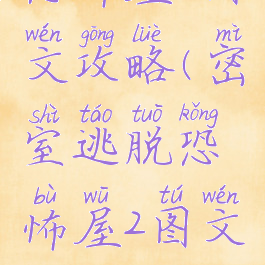 wén gōng lüè mì
文攻略(密
shì táo tuō kǒng
室逃脱恐
bù wū tú wén
怖屋2图文